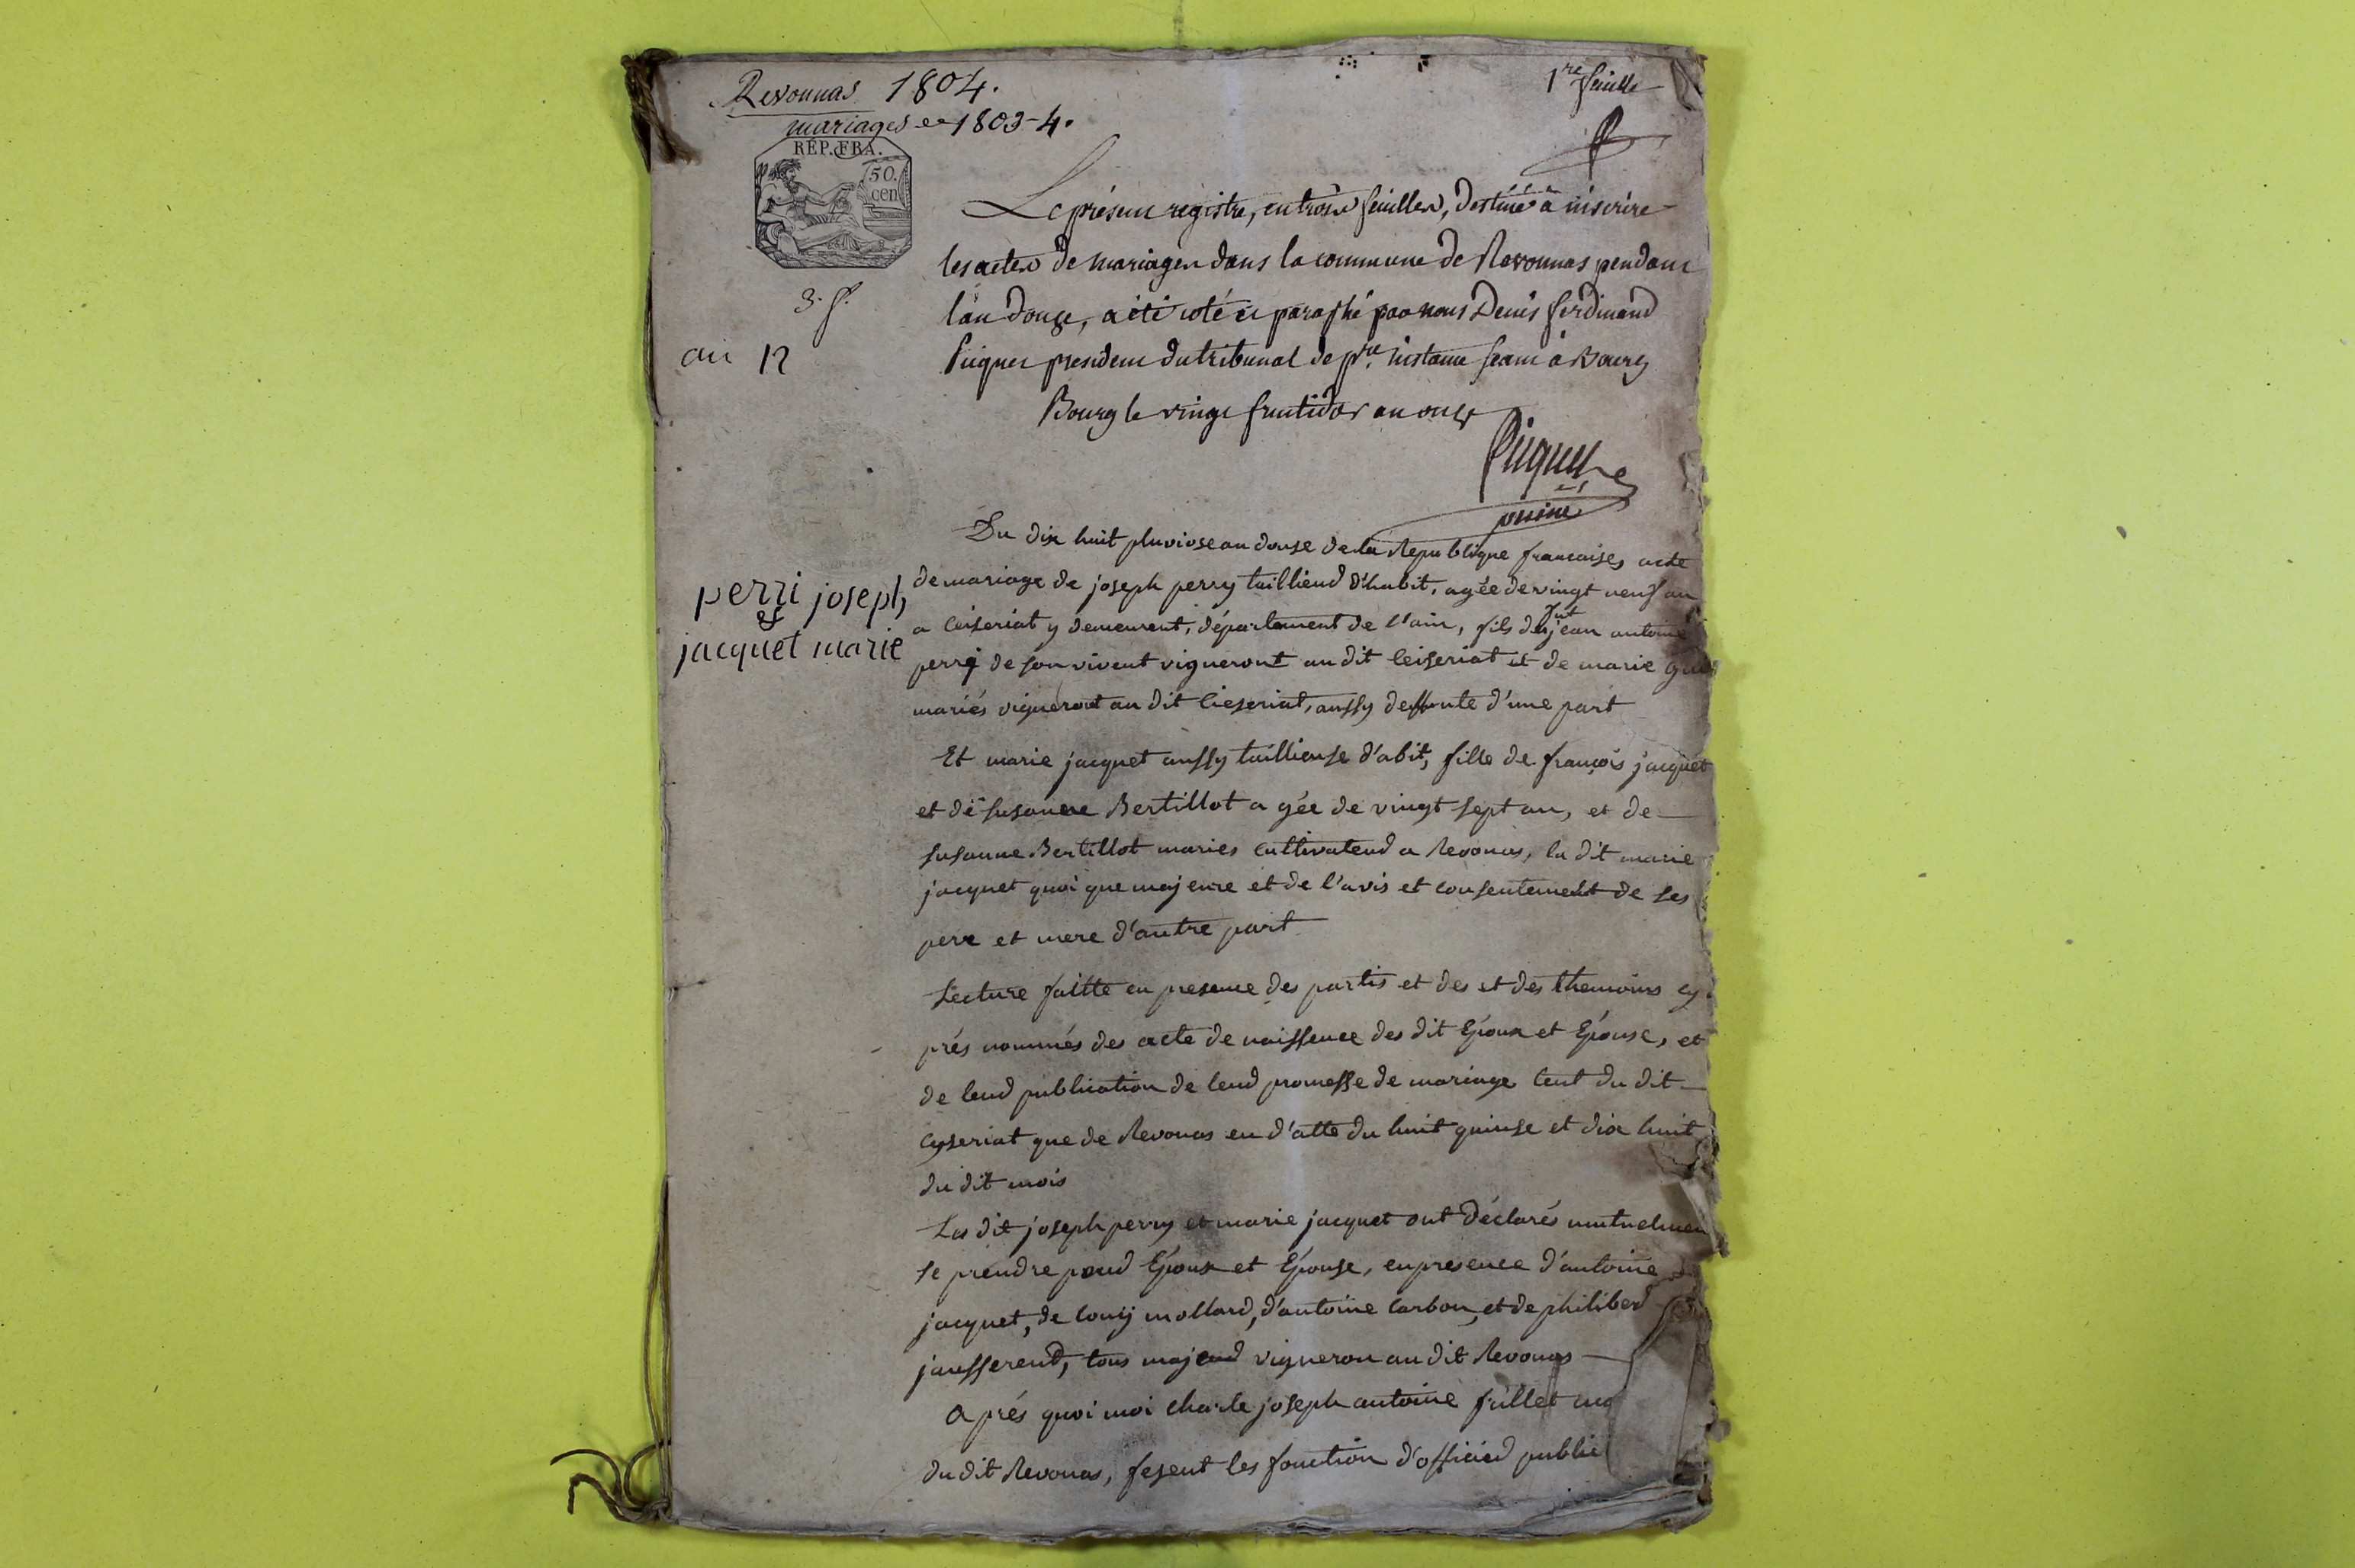 Revonnas 1804.
mariages en 1803-4.
1re feuille
RÉP. FRA.
50.
cen
3. f.
an 12
Le présent registre, en trois feuilles, destiné à inscrire
les actes de mariages dans la commune de Revonnas pendant
l'an douze, a été coté et paraphé par nous Denis ferdinand
president du tribunal de pre. instance seant à Bourg
Bourg le vingt fructidor an onze
perri joseph
&
jacquet marie
Du dix huit pluviose an douse de la Republique francaise, acte
de mariage de joseph perry tailliend d'habit, agée de vingt neuf an
a Ceiseriat y demeurent, département de l'ain, fils de fut jean antoine
perry de son vivent vigneront au dit Ceiseriat et de marie
mariés vigneront au dit Cieseriat, aussy deffunte d'une part
Et marie jacquet aussy taillieuse d'abit, fille de françois jacquet
et de susanne Bertillot a gée de vingt sept an, et de
susanne Bertillot maries cultivatend a Revonas, la dit marie
jacquet quoi que majeure et de l'avis et consentement de ses
pere et mere d'autre part
Lecture faitte en presence des partis et des et des themoins cy
prés nommés des acte de naissence des dit Epoux et Epouse, et
de leud publication de leud promesse de mariage tent du dit
Cyseriat que de Revonas en d'atte du huit quinse et dix huit
du dit mois
Les dit joseph perry et marie jacquet ont déclarés mutuelmen
se prendre poud Epoux et Epouse, en presence d'antoine
jacquet, de louij mollard, d'antoine Carbon, et de philiberd
jausserend, tous majeud vigneron au dit Revonas
a prés quoi moi charle joseph antoine frillet
du dit Revonas, fesent les fonction d'officied public